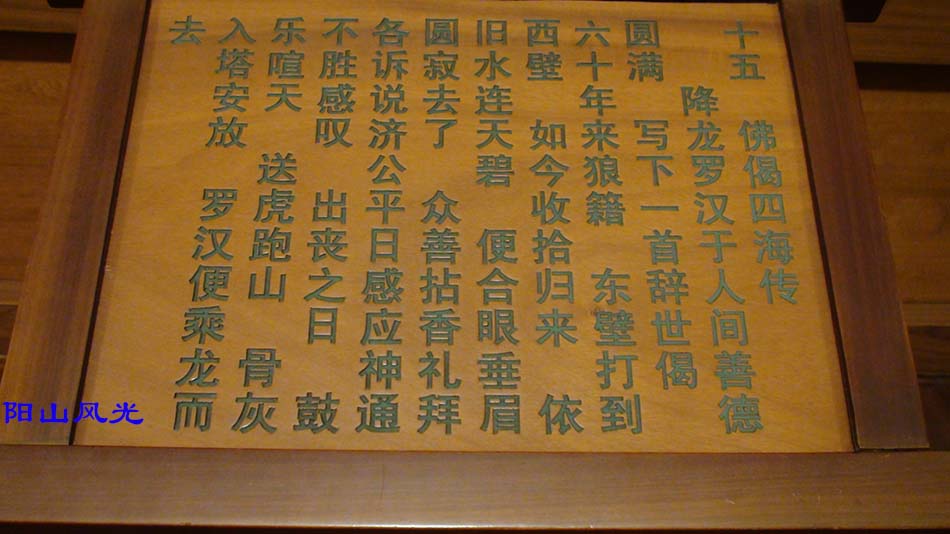 十五 佛偈四海传
降龙罗汉于人间善德
圆满 写下一首辞世偈
六十年来狼籍 东壁打到
西壁 如今收拾归来 依
旧水连天碧 便合眼垂眉
圆寂去了 众善拈香礼拜
各诉说济公平日感应神通
不胜感叹 出丧之日 鼓
乐喧天 送虎跑山 骨灰
入塔安放 罗汉便乘龙而
去
阳山风光